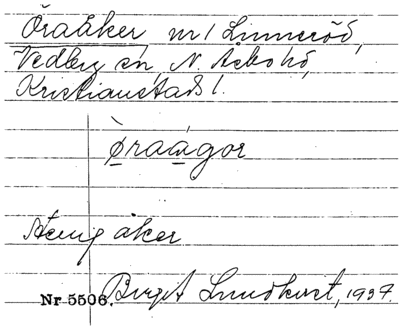 Öraåker, nr 1 Linneröd,
Vedby sn, N. Åsbo hd,
Kristianstads l.
öraågor
Stenig åker
Nr 5506. Birgit Lundkvist, 1937.